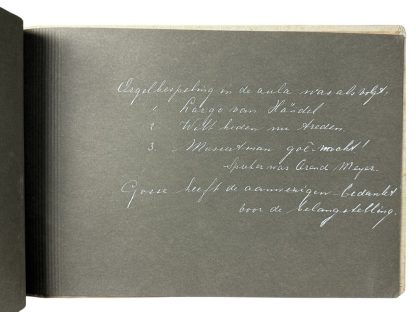 Orgelbespeling in de aula was als volgt:
1. Largo van Händel
2. Wilt heden nu treden
3.
Speler was Arend Meyer.
Gosse heeft de aanwezigen bedankt
voor de belangstelling.